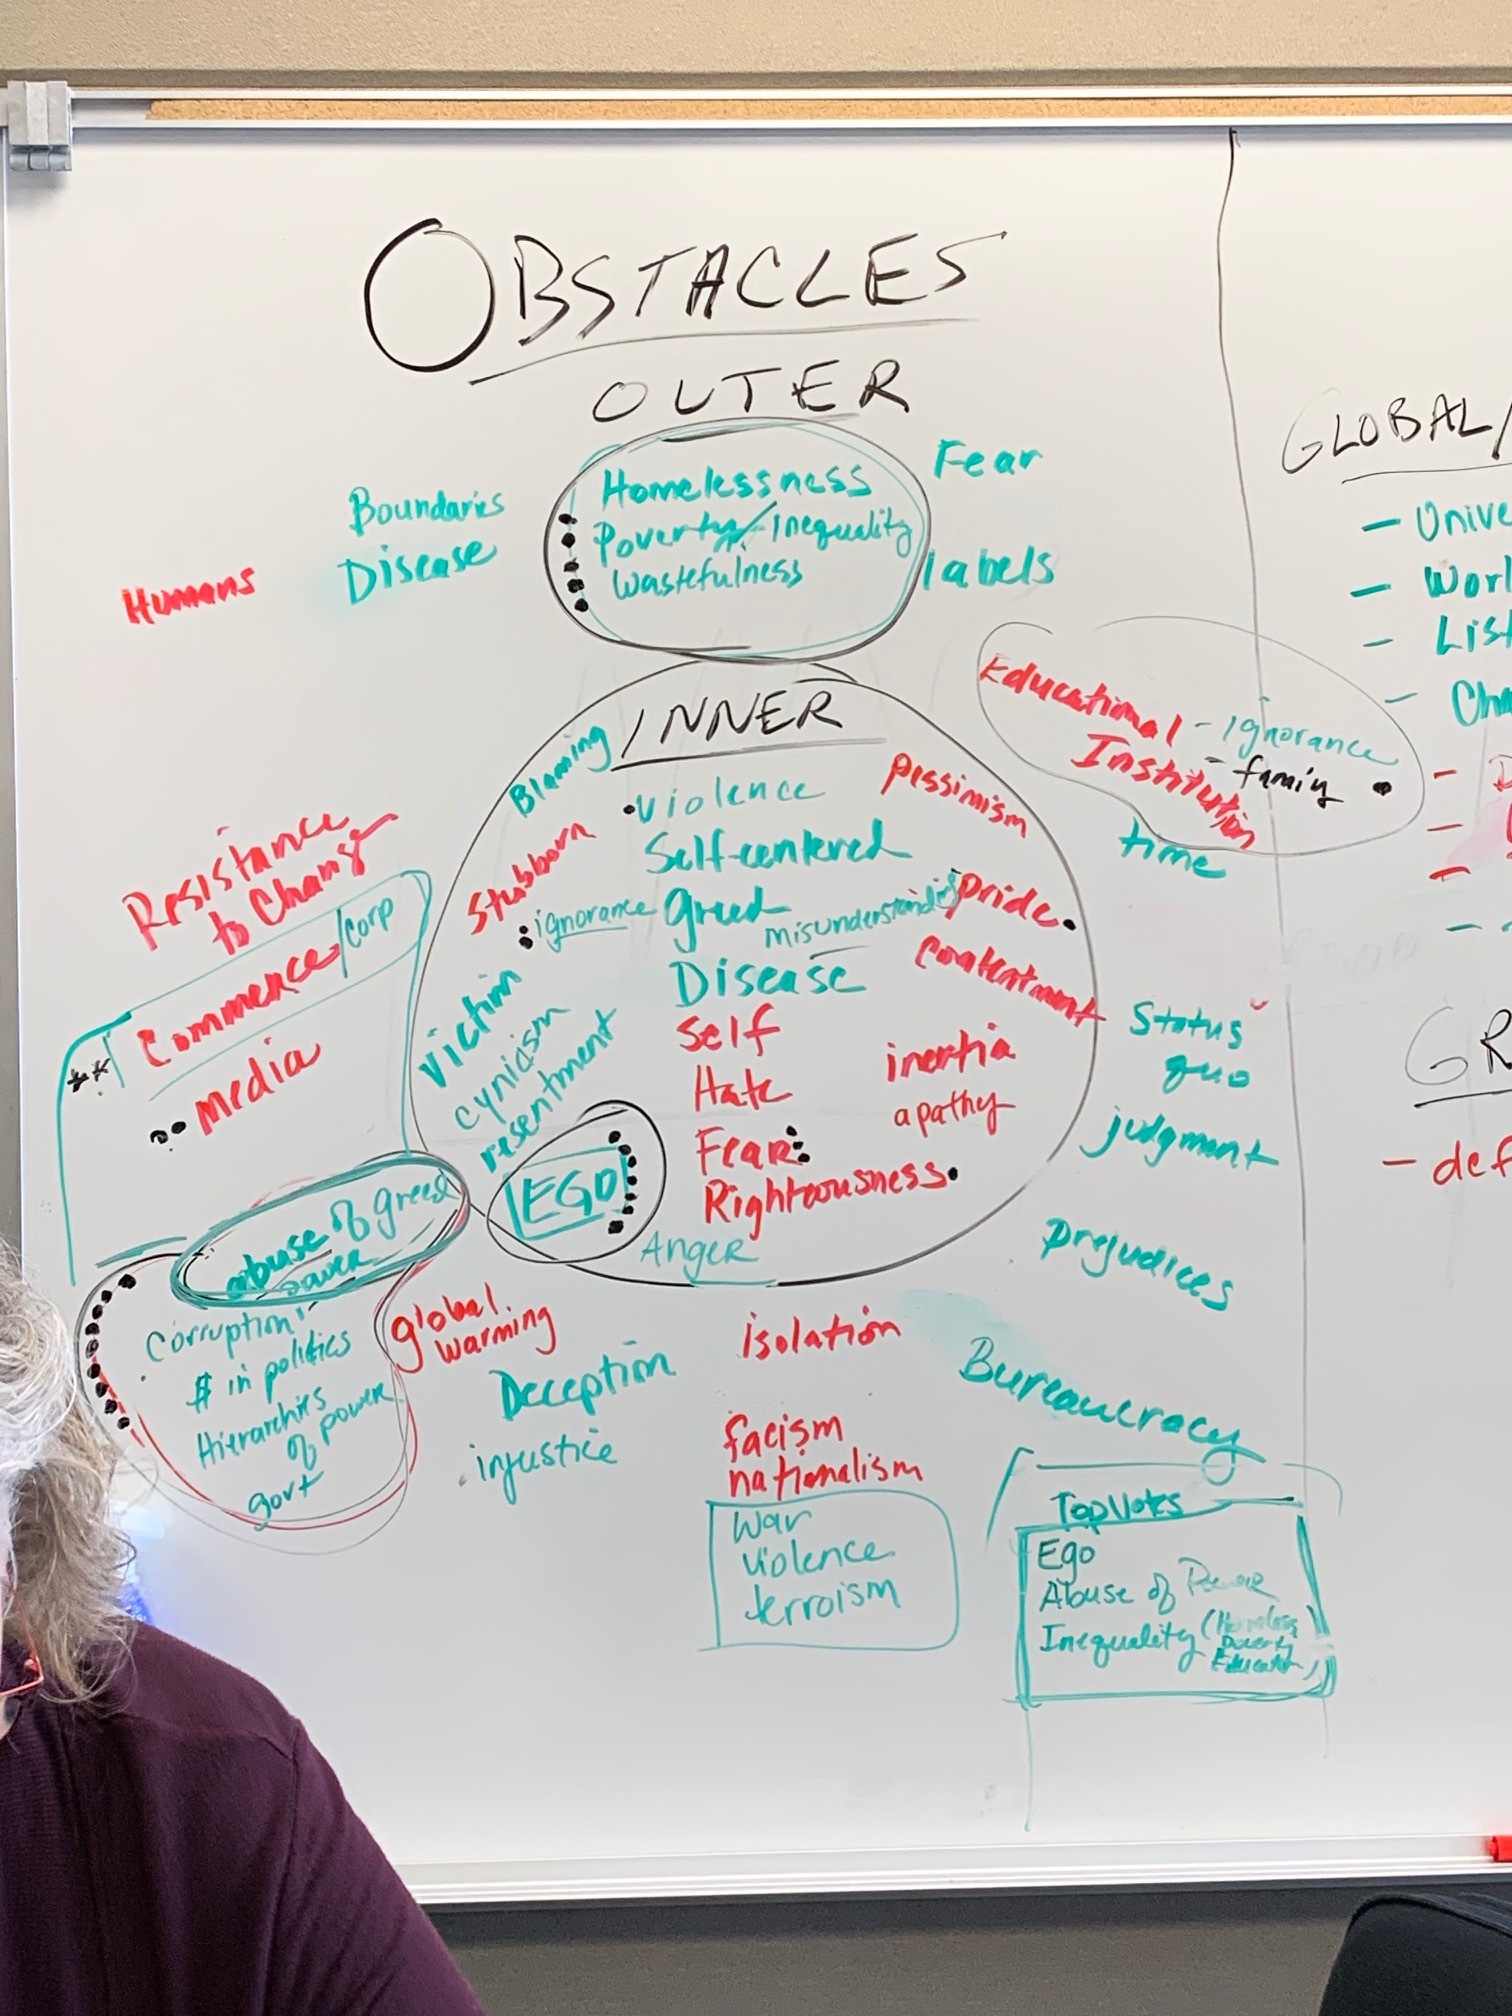 OBSTACLES
OUTER
Homelessness
Poverty/Inequality
Wastefulness
Boundaries
Disease
Humans
Fear
labels
Educational
Institution
- ignorance
- family
time
INNER
Blaming
Stubborn
ignorance
Victim
cynicism
resentment
EGO
violence
Self-centered
Greed
misunderstanding
Disease
Self
Hate
Fear
Righteousness
Anger
pessimism
pride
contentment
inertia
apathy
Status
quo
judgment
prejudices
Bureaucracy
Resistance
to Change
** Commence/corp
media
abuse of greed
power
Corruption
$ in politics
Hierarchies
of power
govt
global
warming
Deception
injustice
isolation
facism
nationalism
war
violence
terroism
Top Votes
Ego
Abuse of
Inequality (Homeless
Poverty
GLOBAL/
- Unive
- Worl
- List
- Cha
GR
- def